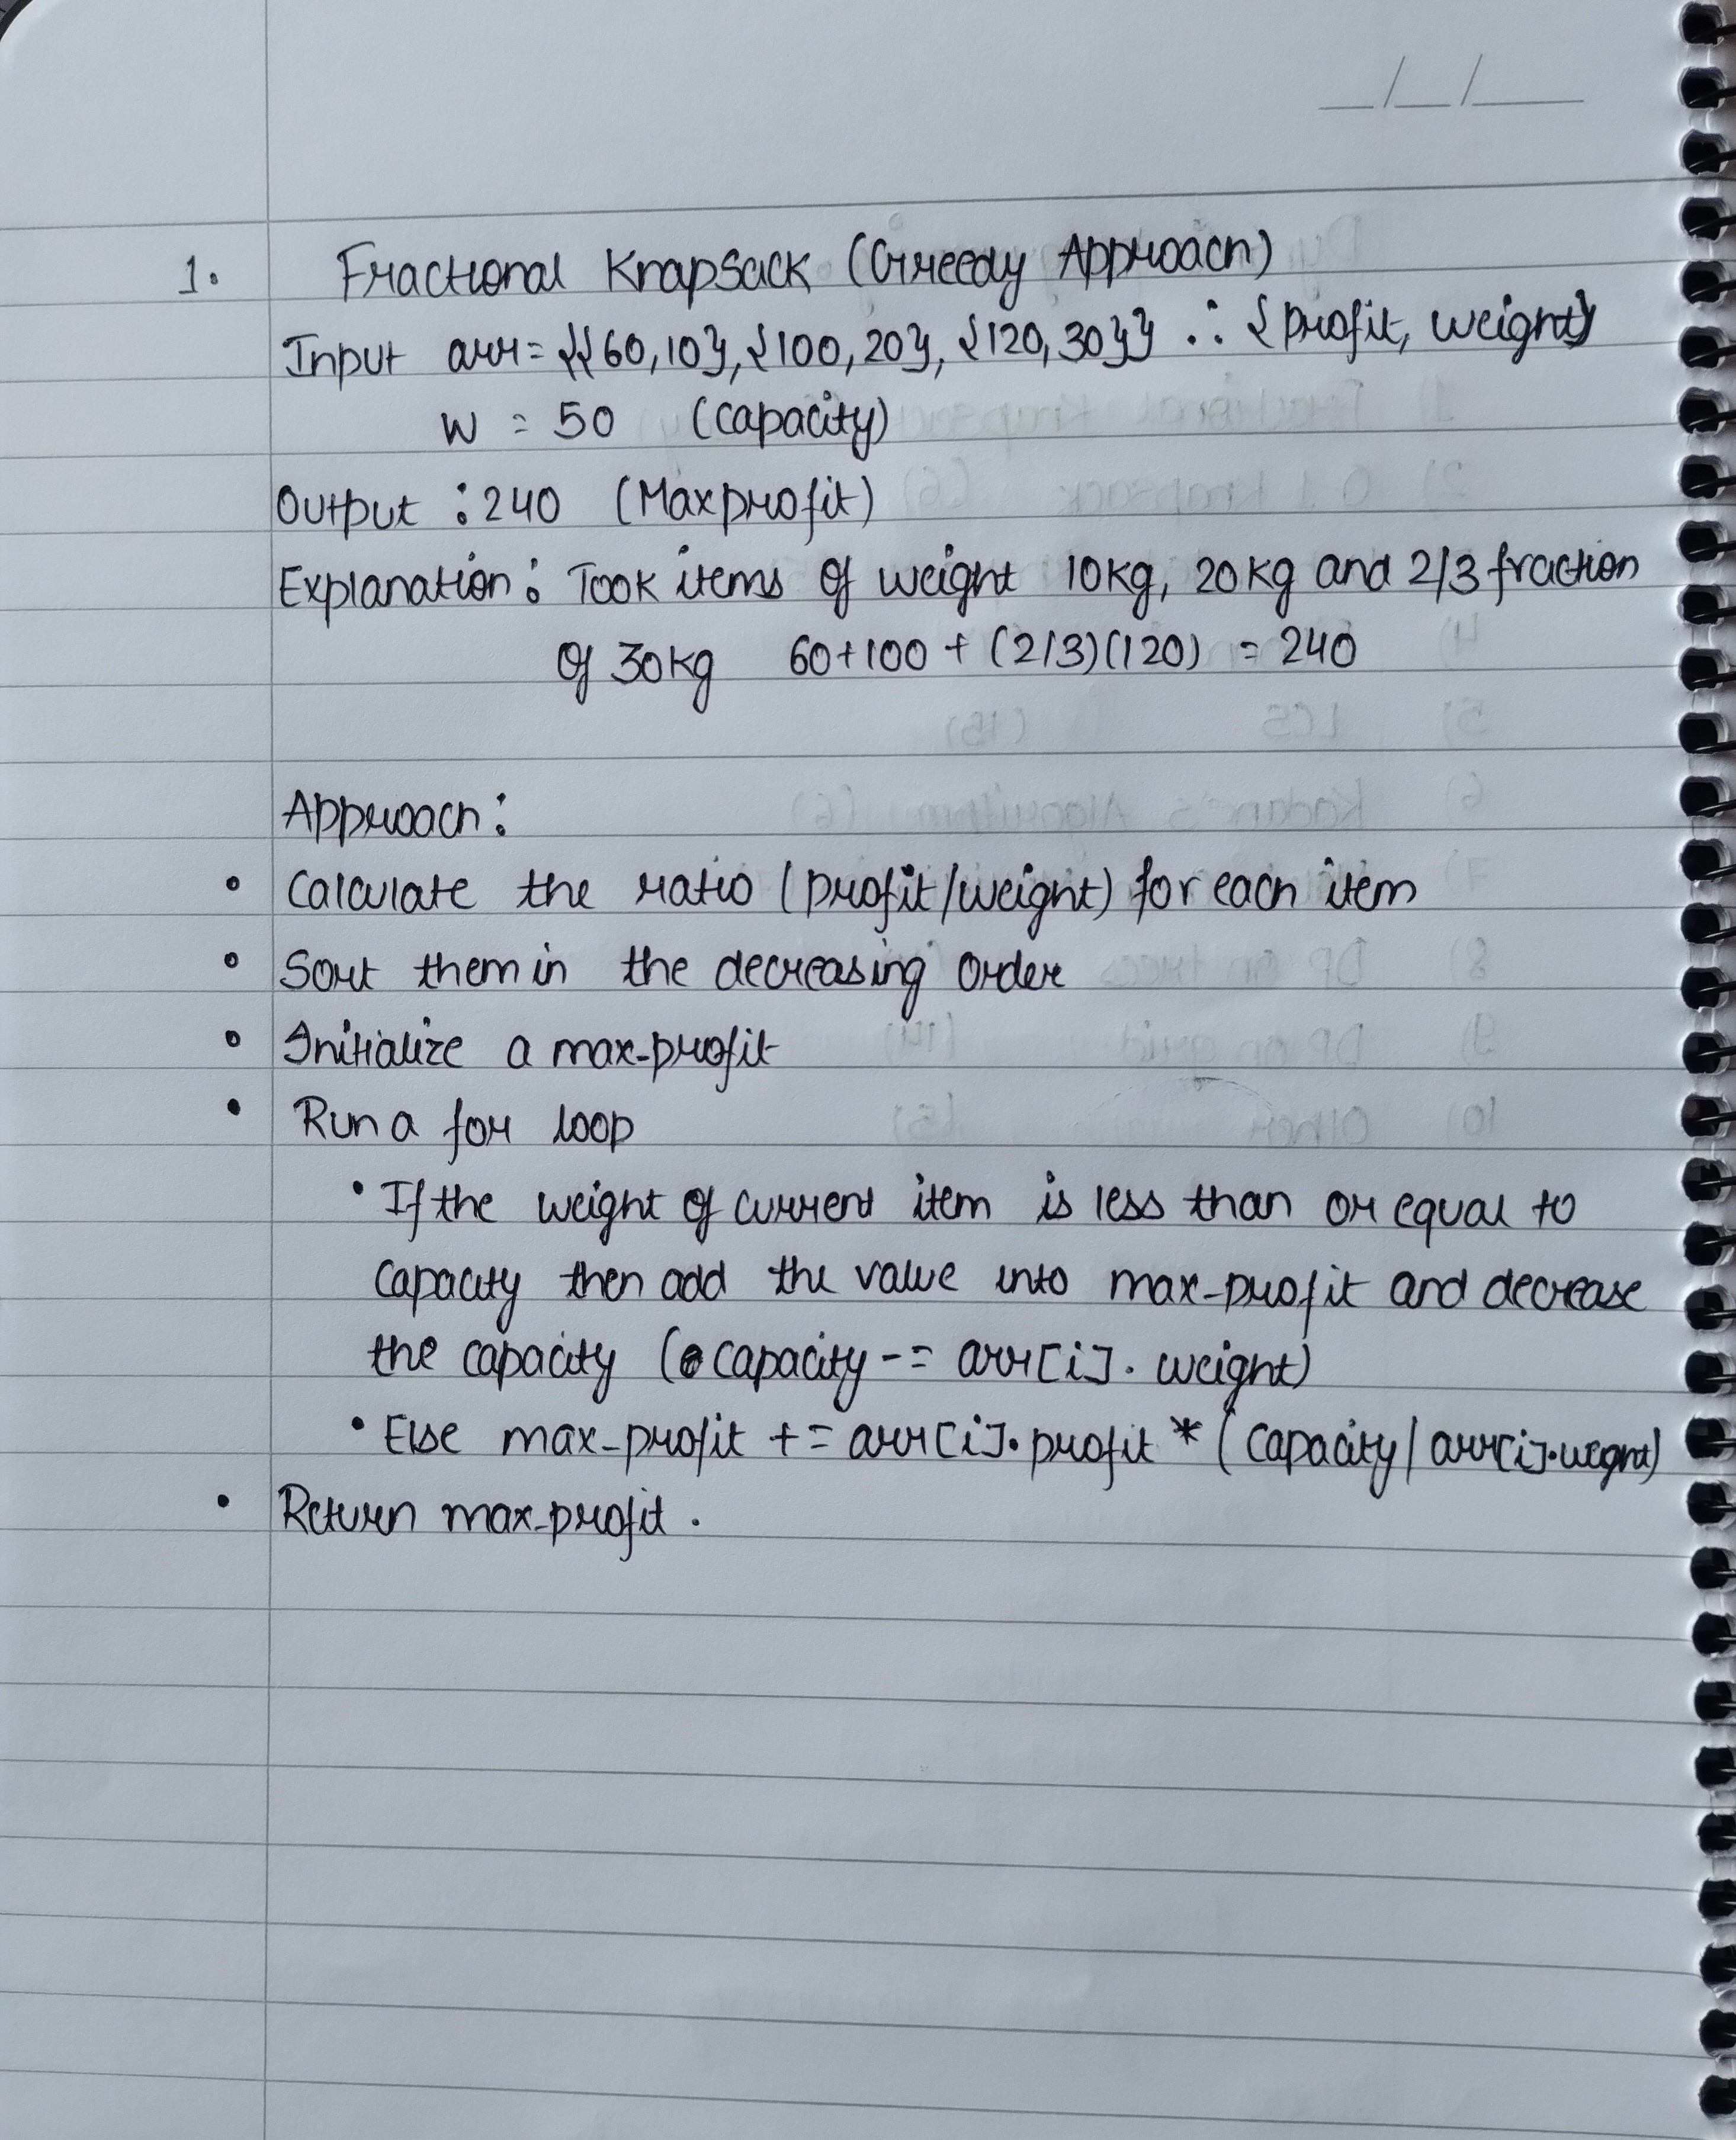 1. Fractional Knapsack (Greedy Approach)
Input arr = {{60,10},{100,20},{120,30}} ∴ {profit, weight}
W = 50 (capacity)
Output : 240 (Maxprofit)
Explanation : Took items of weight 10kg, 20kg and 2/3 fraction
of 30kg 60+100 + (2/3)(120) = 240
Approach :
• Calculate the ratio (profit/weight) for each item
• Sort them in the decreasing order
• Initialize a max-profit
• Run a for loop
• If the weight of current item is less than or equal to
capacity then add the value into max-profit and decrease
the capacity (capacity -= arr[i].weight)
• Else max-profit += arr[i].profit * (capacity/arr[i].weight)
• Return max-profit.